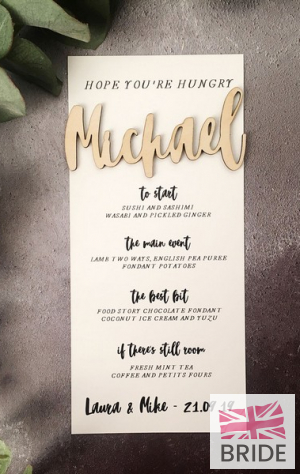 HOPE YOU'RE HUNGRY
Michael
to start
SUSHI AND SASHIMI
WASABI AND PICKLED GINGER
the main event
LAMB TWO WAYS, ENGLISH PEA PUREE
FONDANT POTATOES
the best bit
FOOD STORY CHOCOLATE FONDANT
COCONUT ICE CREAM AND YUZU
if there's still room
FRESH MINT TEA
COFFEE AND PETITS FOURS
Laura & Mike - 21.09.19
BRIDE